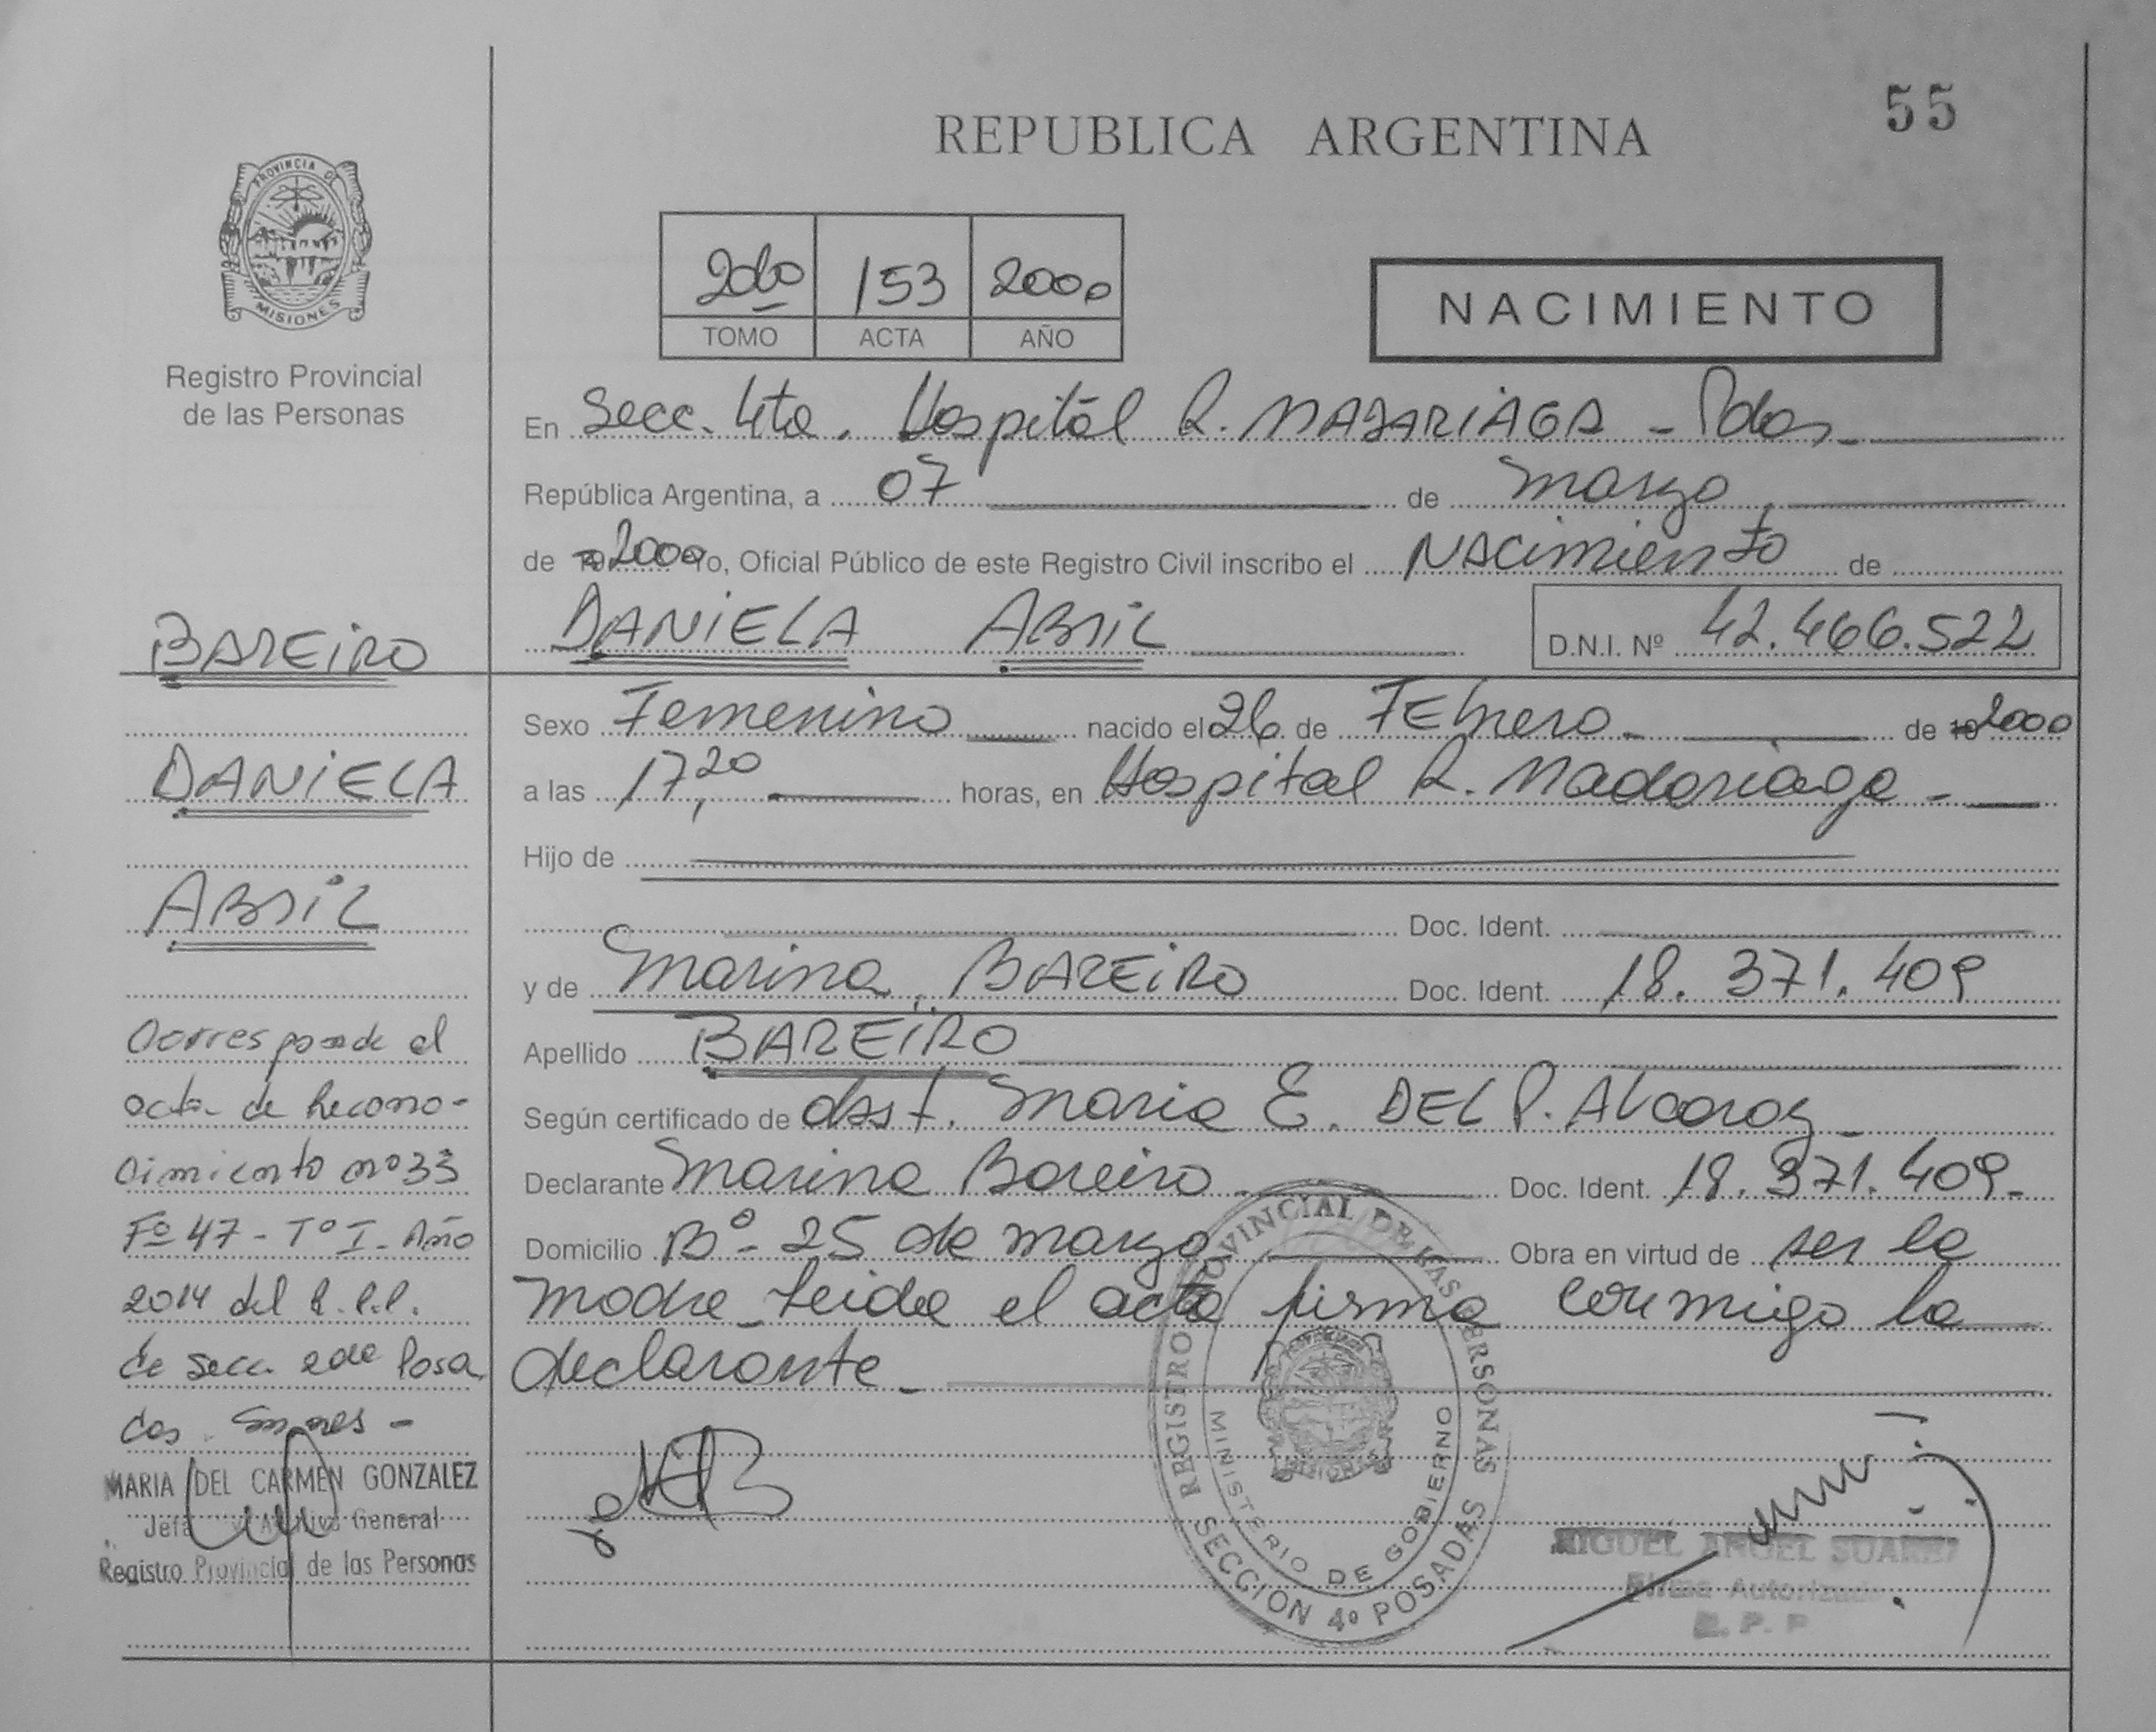 55
REPUBLICA ARGENTINA
PROVINCIA DE
MISIONES
Registro Provincial
de las Personas
2000 153 2000
TOMO ACTA AÑO
NACIMIENTO
En Secc. 4ta. Hospital R. MADARIAGA - Pdas
República Argentina, a 07 de marzo
de 2000 Yo, Oficial Público de este Registro Civil inscribo el NACimiento de
DANIELA ABRIL D.N.I. Nº 42.466.522
Sexo Femenino nacido el 26 de FEbrero de 19 2000
a las 17,20 horas, en Hospital R. Madariaga -
Hijo de
Doc. Ident.
y de Marina BAREIRO Doc. Ident. 18. 371. 409
Apellido BAREIRO
Según certificado de obst. Maria E. DEL P. ALcaraz
Declarante Marina Bareiro Doc. Ident. 18. 371. 409.
Domicilio Bº- 25 de marzo Obra en virtud de ser la
madre Leida el acta firma conmigo la
declarante.
BAREIRO
DANIELA
ABRIL
Corresponde al
acta de Recono-
cimiento nº 33
Fº 47 - Tº I - Año
2014 del R.P.P.
de Secc. 2da Posa
das. Smones -
MARIA DEL CARMEN GONZALEZ
Jefa Archivo General
Registro Provincial de las Personas
REGISTRO PROVINCIAL DE LAS PERSONAS
MINISTERIO DE GOBIERNO
SECCION 4º POSADAS
MIGUEL ANGEL SUAREZ
Firma Autorizada
R. P. P